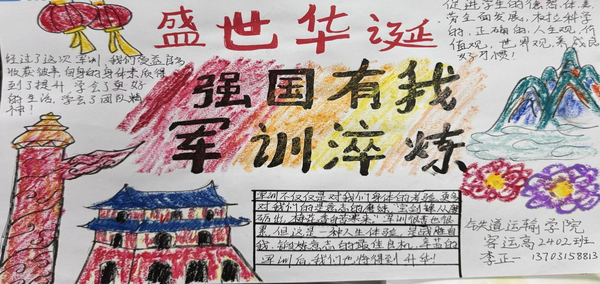 盛世华诞
强国有我
军训淬炼
经过了这次军训,我们受益良多
收获
到了提升,学会了更好
的生活,学会了团队精
神!
促进学生的德智体美
劳全面发展,树立科学
的,正确的,人生观,价
值观,世界观,养成良
好习惯!
军训不仅仅是对我们身体的考验,更多
对我们的意志的磨练。宝剑锋从磨
砺出,梅花香自苦寒来。军训很苦也很
累,但这是一种人生体验,是战胜自
我,锻炼意志的最佳良机,辛苦的
军训后,我们也将得到升华!
铁道运输学院
客运高2402班
李正一 13703158813